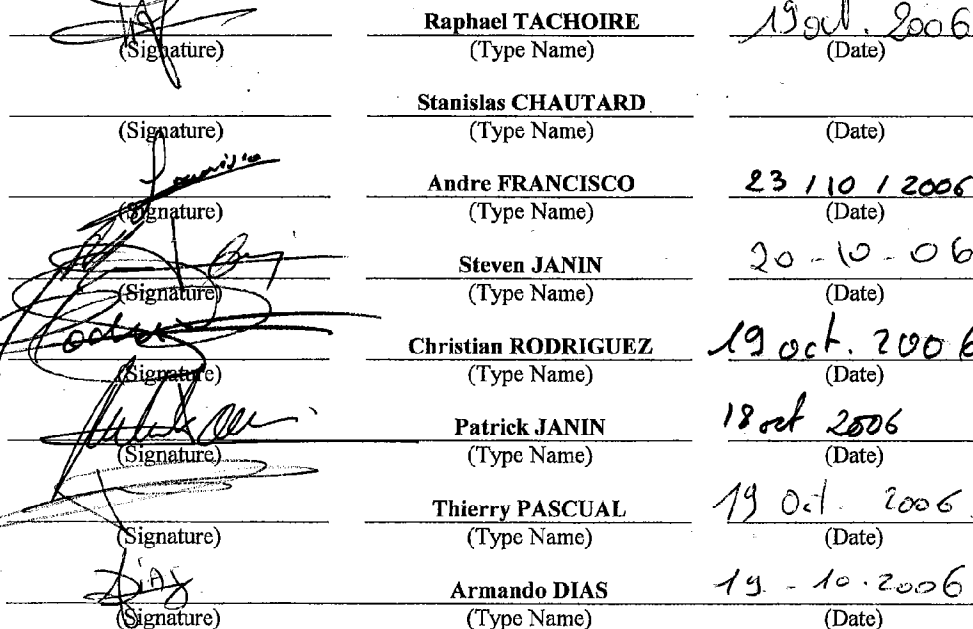 Raphael TACHOIRE 19 oct. 2006
(Signature) (Type Name) (Date)
Stanislas CHAUTARD
(Signature) (Type Name) (Date)
Andre FRANCISCO 23 / 10 / 2006
(Signature) (Type Name) (Date)
Steven JANIN 20 - 10 - 06
(Signature) (Type Name) (Date)
Christian RODRIGUEZ 19 oct. 2006
(Signature) (Type Name) (Date)
Patrick JANIN 18 oct 2006
(Signature) (Type Name) (Date)
Thierry PASCUAL 19 Oct. 2006
(Signature) (Type Name) (Date)
DIAS Armando DIAS 19 - 10 - 2006
(Signature) (Type Name) (Date)